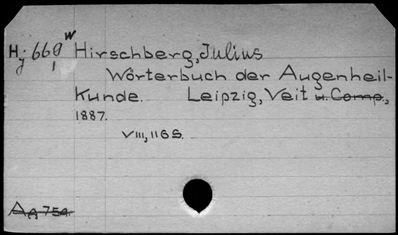 Hj 660 w Hirschberg, Julius
1
Wörterbuch der Augenheil-
kunde. Leipzig, Veit u. Comp.,
1887.
VIII, 116 S.
Ag 754